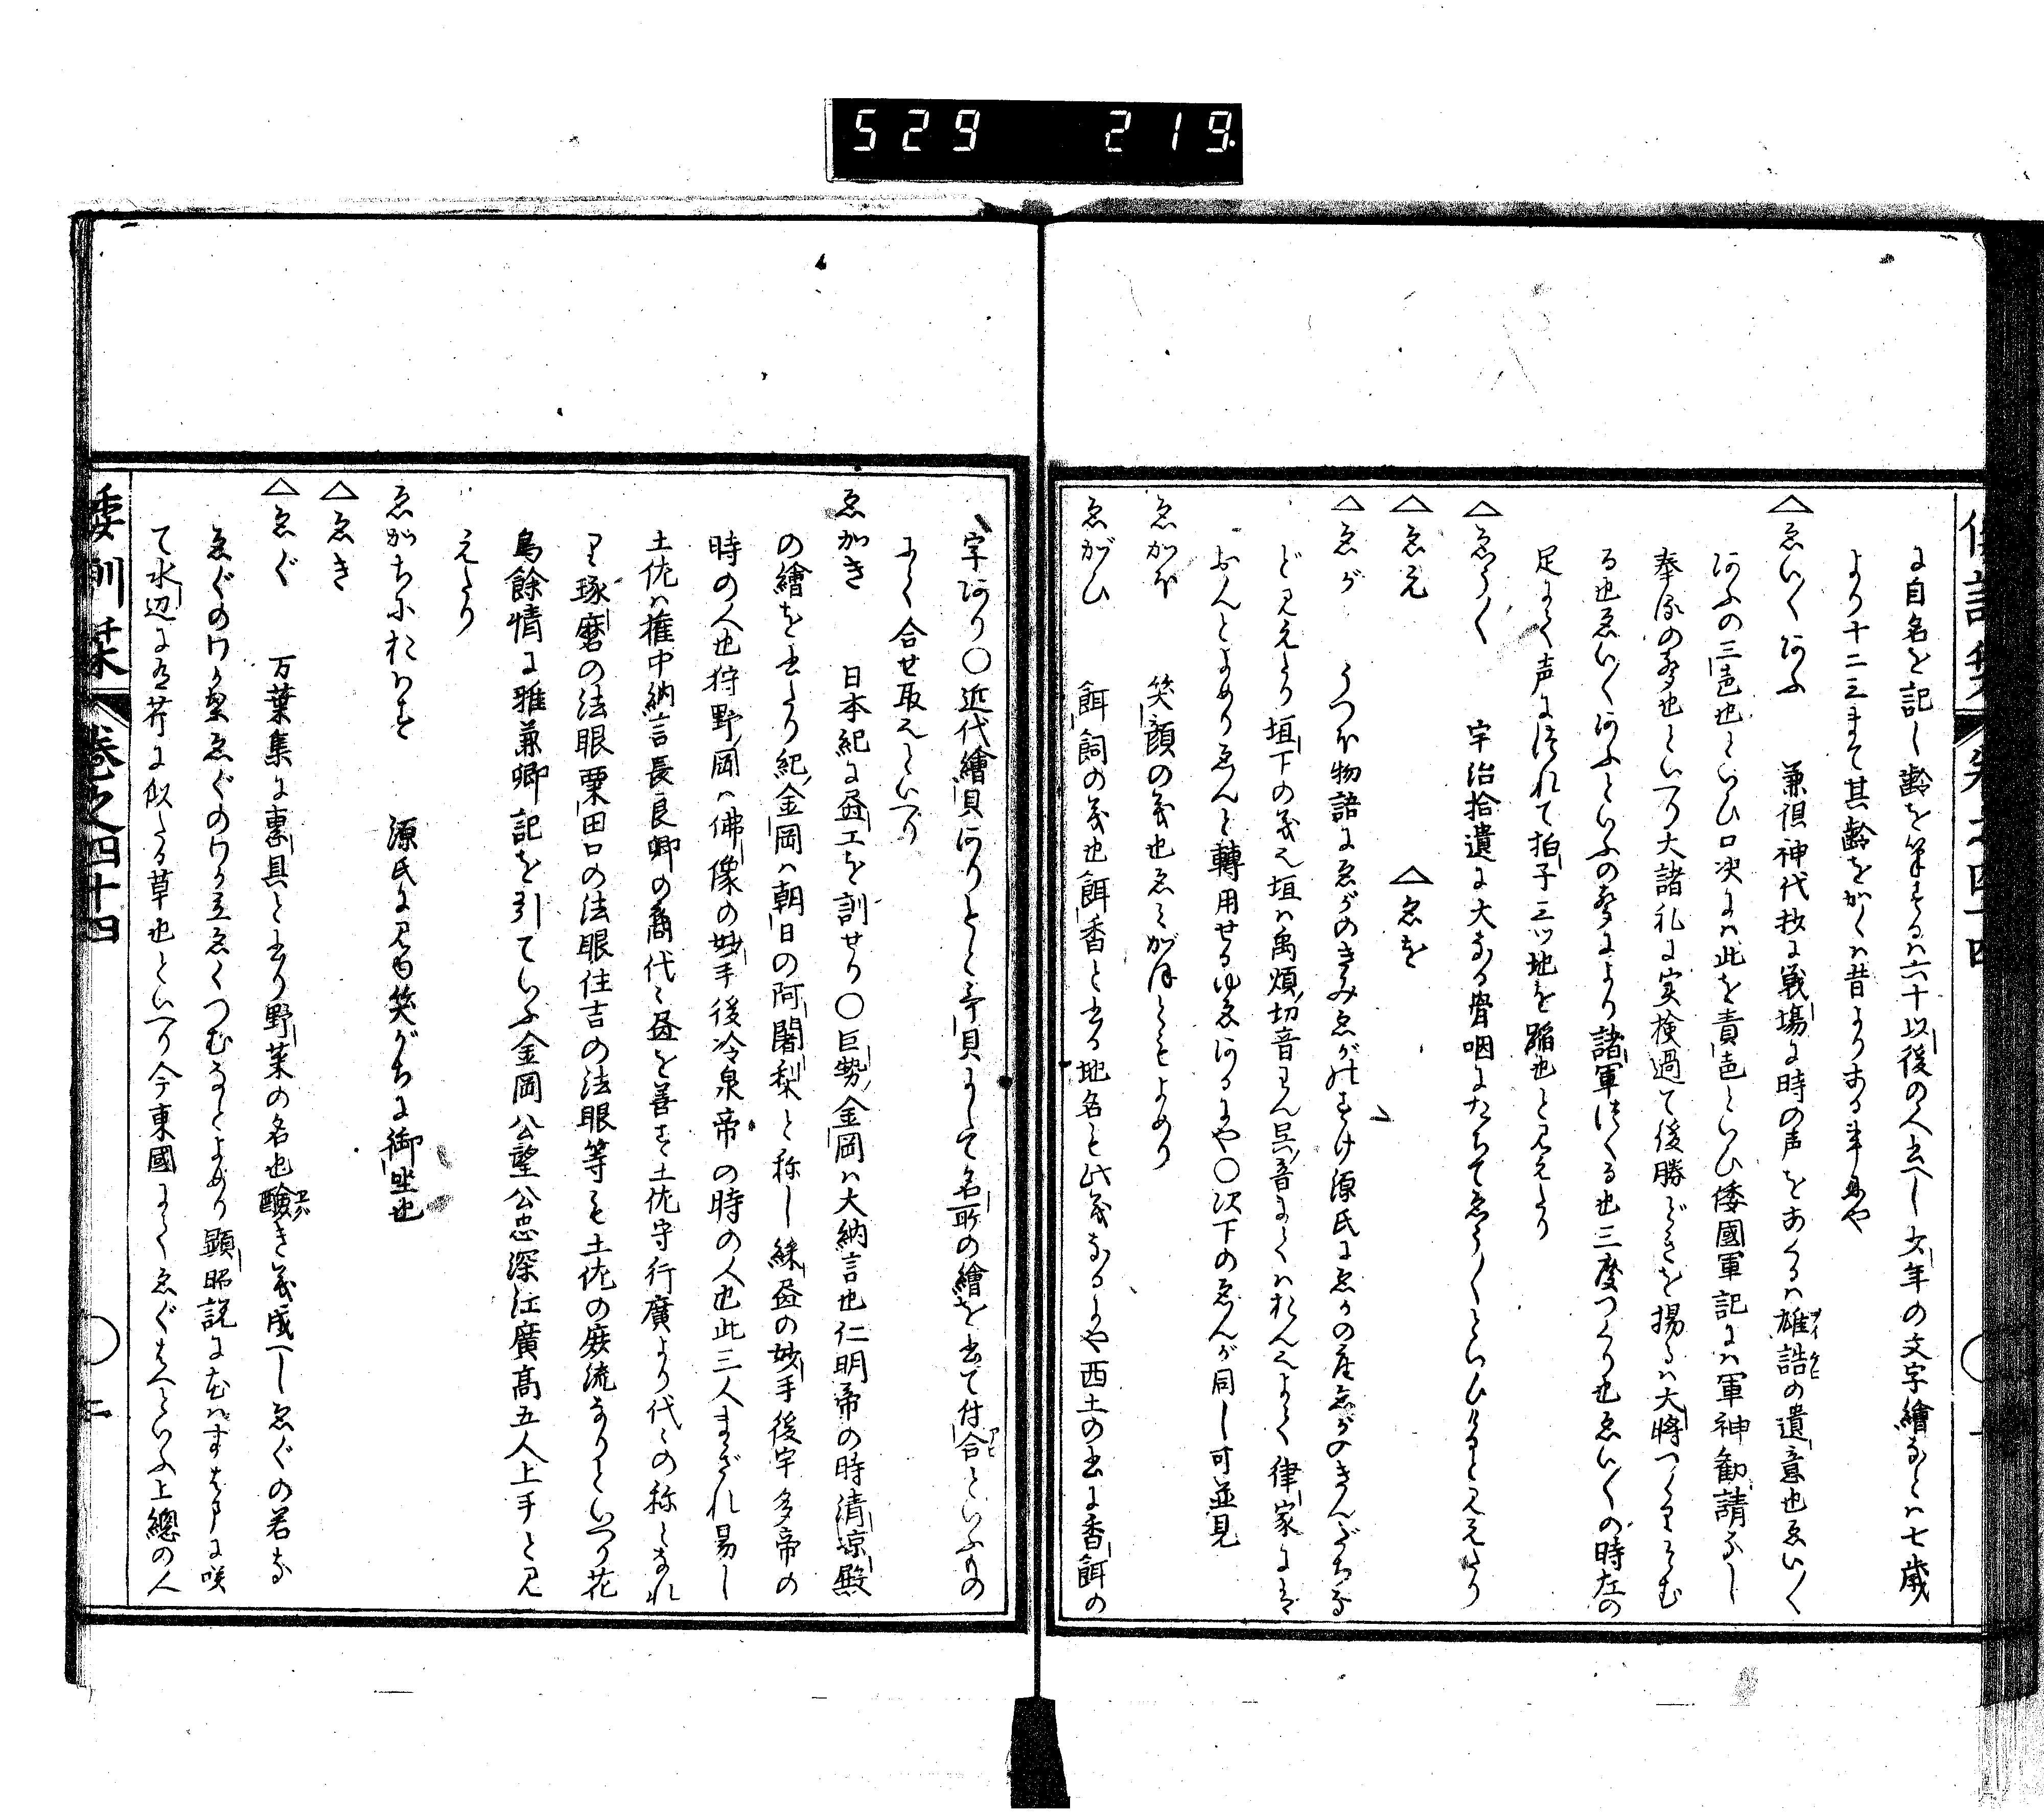 529 219.
に自名を記し齢を筆するは六十以後の人書へし少年の文字繪なとは七歳
より十二三まて其齢をかくは昔よりある事にや
△ゑい〳〵あふ 兼倶神代抄に戦場に時の声をあくるは雄誥の遺意也ゑい〳〵
あふの三邑也といひ口决には此を責邑といひ倭國軍記には軍神勧請なし
奉るの聲也といへり大諸礼に実検過て後勝どきを揚るは大將つくりそむ
る也ゑい〳〵あふといふの聲により諸軍つくる也三度つくり也ゑい〳〵の時左の
足にて声につれて拍子三ッ地を蹈也と見えたり
△ゑう〳〵 宇治拾遺に大なる骨咽にたちてゑう〳〵といひけると見えたり
△ゑえ △ゑを
△ゑが うつほ物語にゑがのきみゑがのすけ源氏にゑかの座ゑがのきんだちな
ど見えたり垣下の義也垣は禹煩切音
おんとよめりゑんと轉用せるゆゑあるにや〇次下のゑんが同し可並見
ゑがほ 笑顔の義也ゑみがほともよめり
ゑがひ 餌飼の義也餌香と書る地名も此義なるにや西土の書に香餌の
字あり〇近代繪貝ありもと哥貝にして名所の繪を書て付合といふもの
にて合せ取也といへり
ゑがき 日本紀に畫工を訓せり〇巨勢金岡は大納言也仁明帝の時清凉殿
の繪を書たり紀金岡は朝日の阿闍梨と称し繰畫の妙手後宇多帝の
時の人也狩野岡は佛像の妙手後冷泉帝の時の人也此三人まぎれ易し
土佐は権中納言長良卿の裔代々畫を善す土佐守行廣より代々の称となれ
り琢磨の法眼粟田口の法眼住吉の法眼等も土佐の庶流なりといへり花
鳥餘情に雅兼卿記を引ていふ金岡公望公忠深江廣高五人上手と見
えたり
ゑがちにおはす 源氏に見ゆ笑がちに御坐也
△ゑき
△ゑぐ 万葉集に恵具と書り野菜の名也醶き義成へしゑぐの若な
ゑぐのわか葉ゑぐのわか立ゑぐつむなとよめり顕昭説に
て水辺に有芹に似たる草也といへり今東國にてゑぐといふ上總の人
倭訓栞 巻之四十四 〇 二